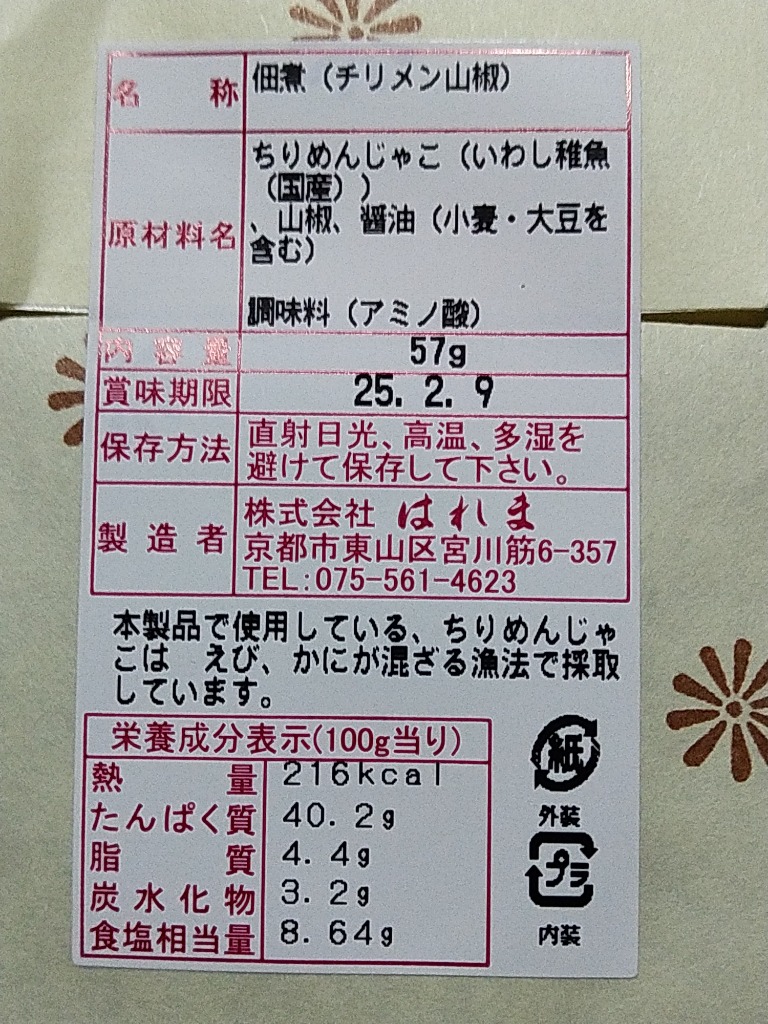 名称 佃煮（チリメン山椒）
原材料名 ちりめんじゃこ（いわし稚魚
（国産））
、山椒、醤油（小麦・大豆を
含む）
調味料（アミノ酸）
内容量 57g
賞味期限 25. 2. 9
保存方法 直射日光、高温、多湿を
避けて保存して下さい。
製造者 株式会社 はれま
京都市東山区宮川筋6-357
TEL:075-561-4623
本製品で使用している、ちりめんじゃ
こは えび、かにが混ざる漁法で採取
しています。
栄養成分表示(100g当り)
熱量 216kcal
たんぱく質 40. 2g
脂質 4. 4g
炭水化物 3. 2g
食塩相当量 8. 64g
紙
外装
プラ
内装